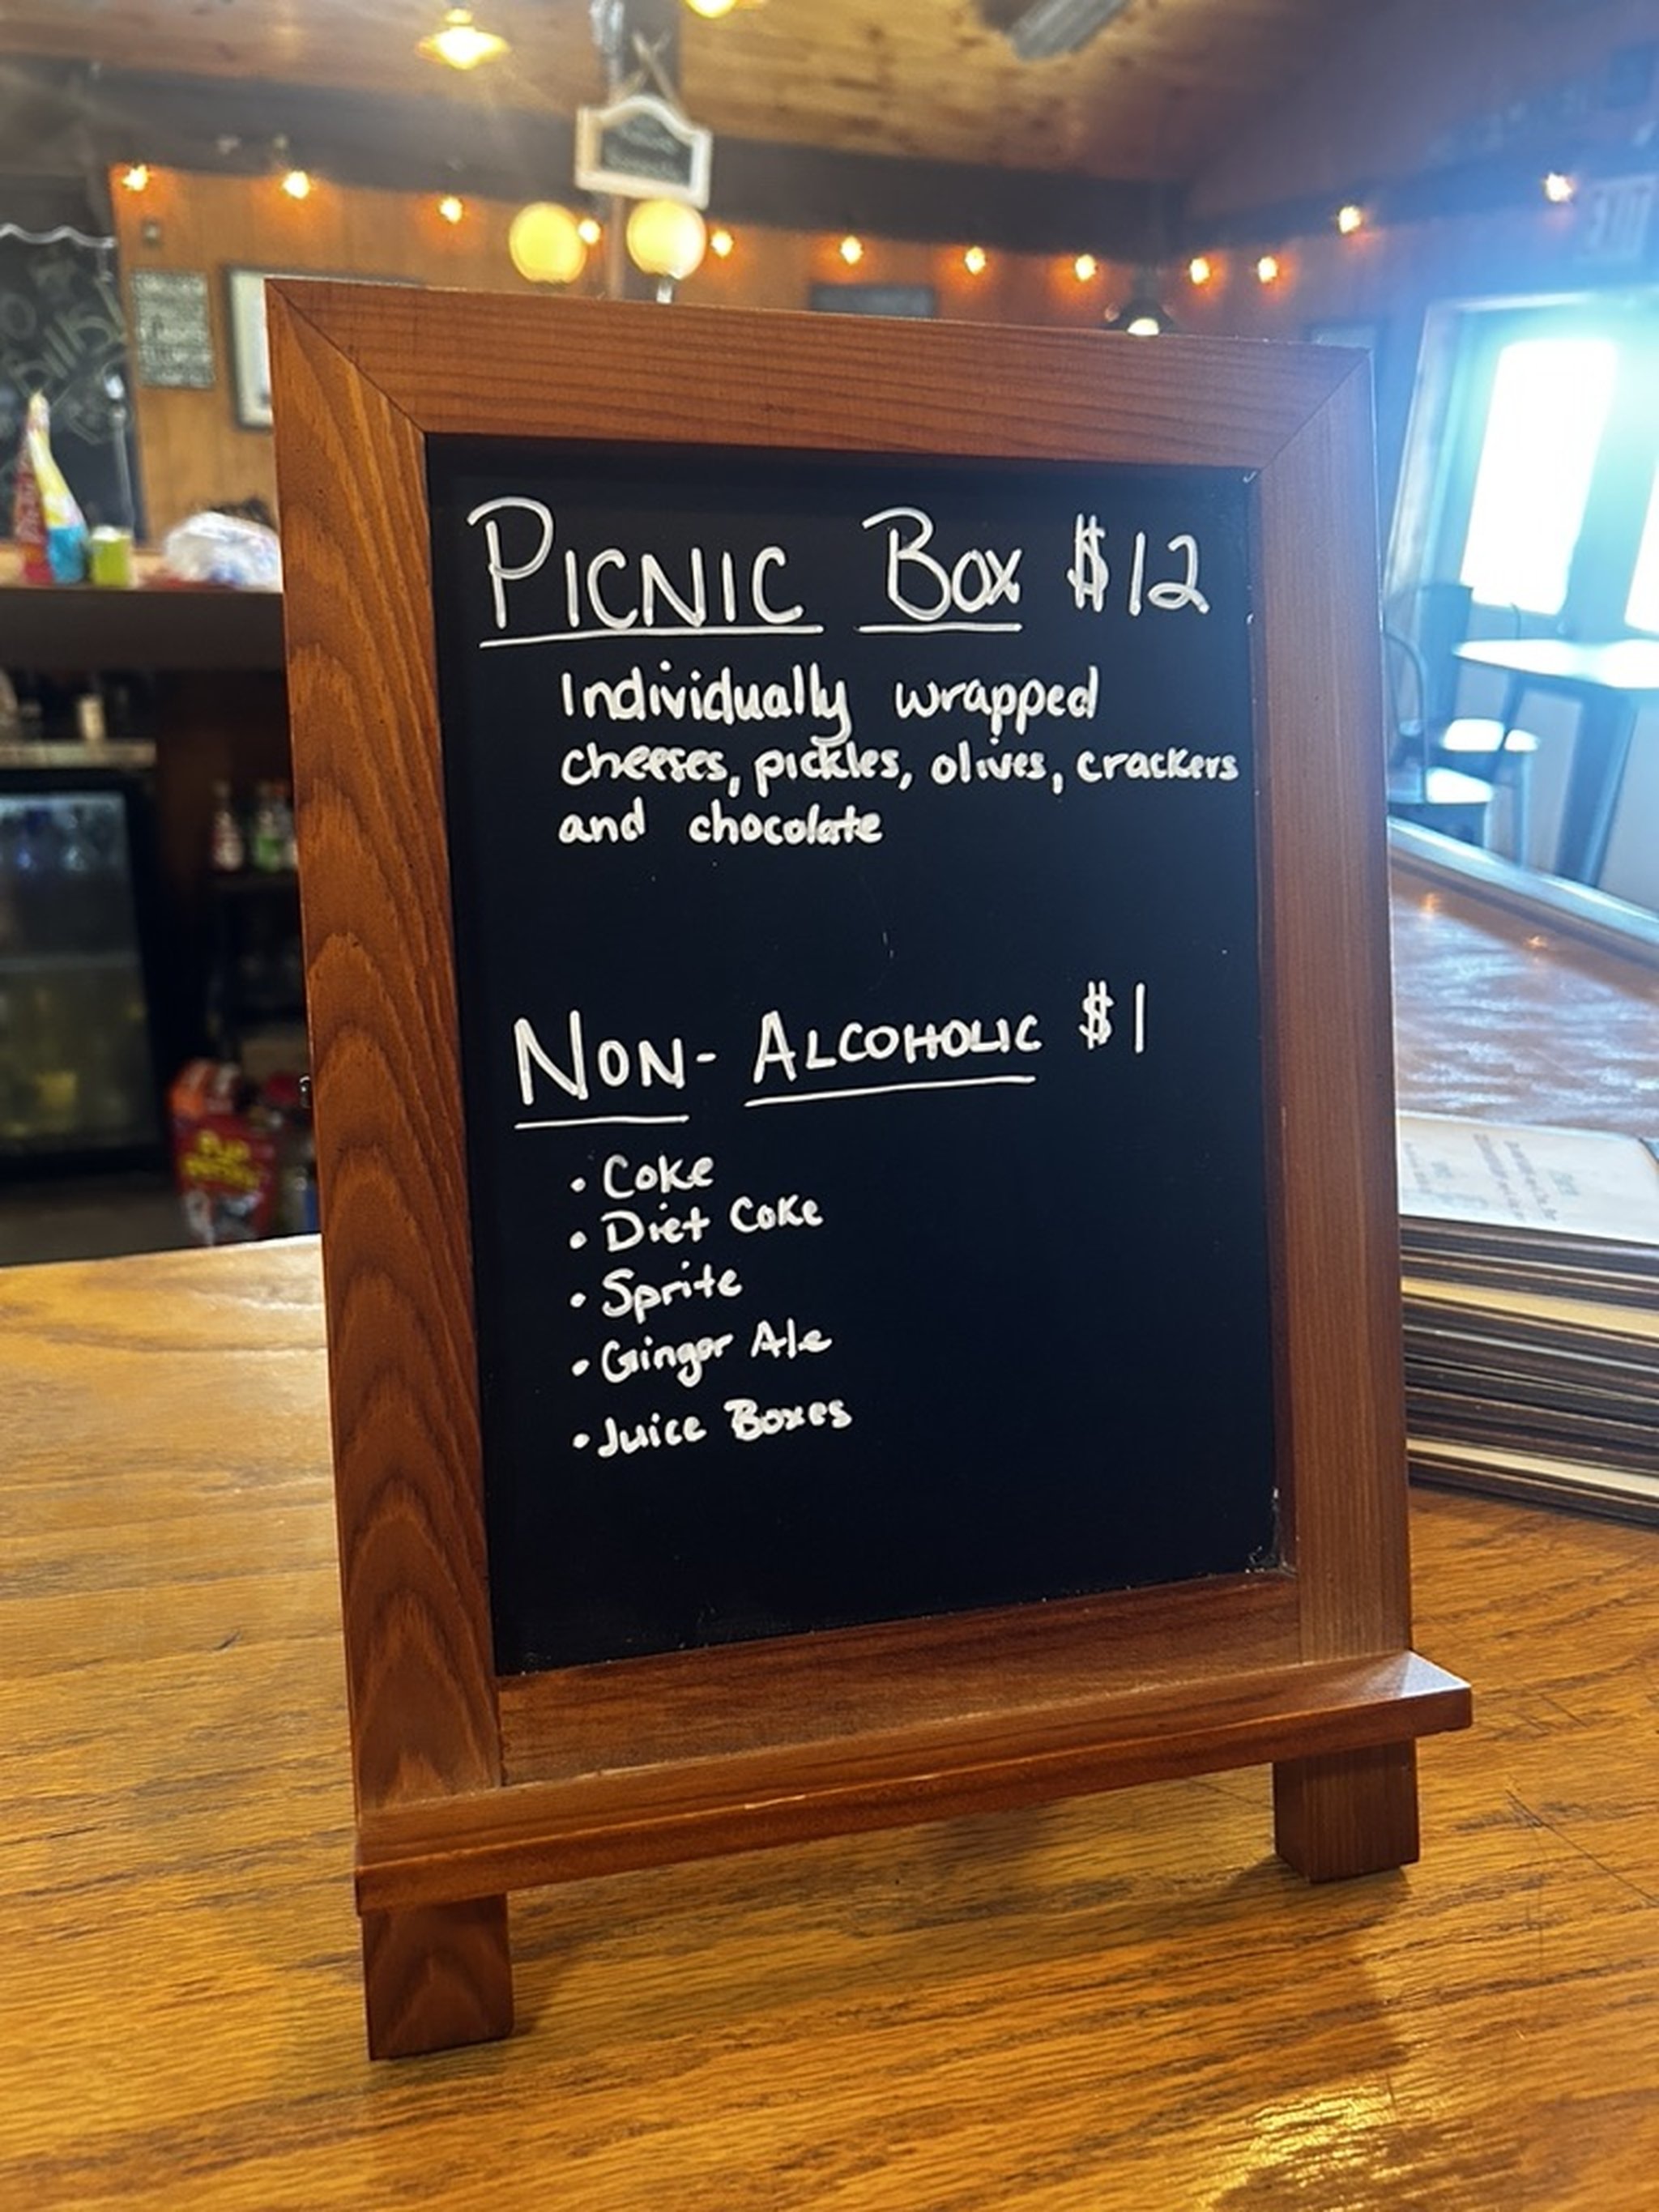 PICNIC BOX $12
Individually wrapped
cheeses, pickles, olives, crackers
and chocolate
NON-ALCOHOLIC $1
• Coke
• Diet Coke
• Sprite
• Ginger Ale
• Juice Boxes